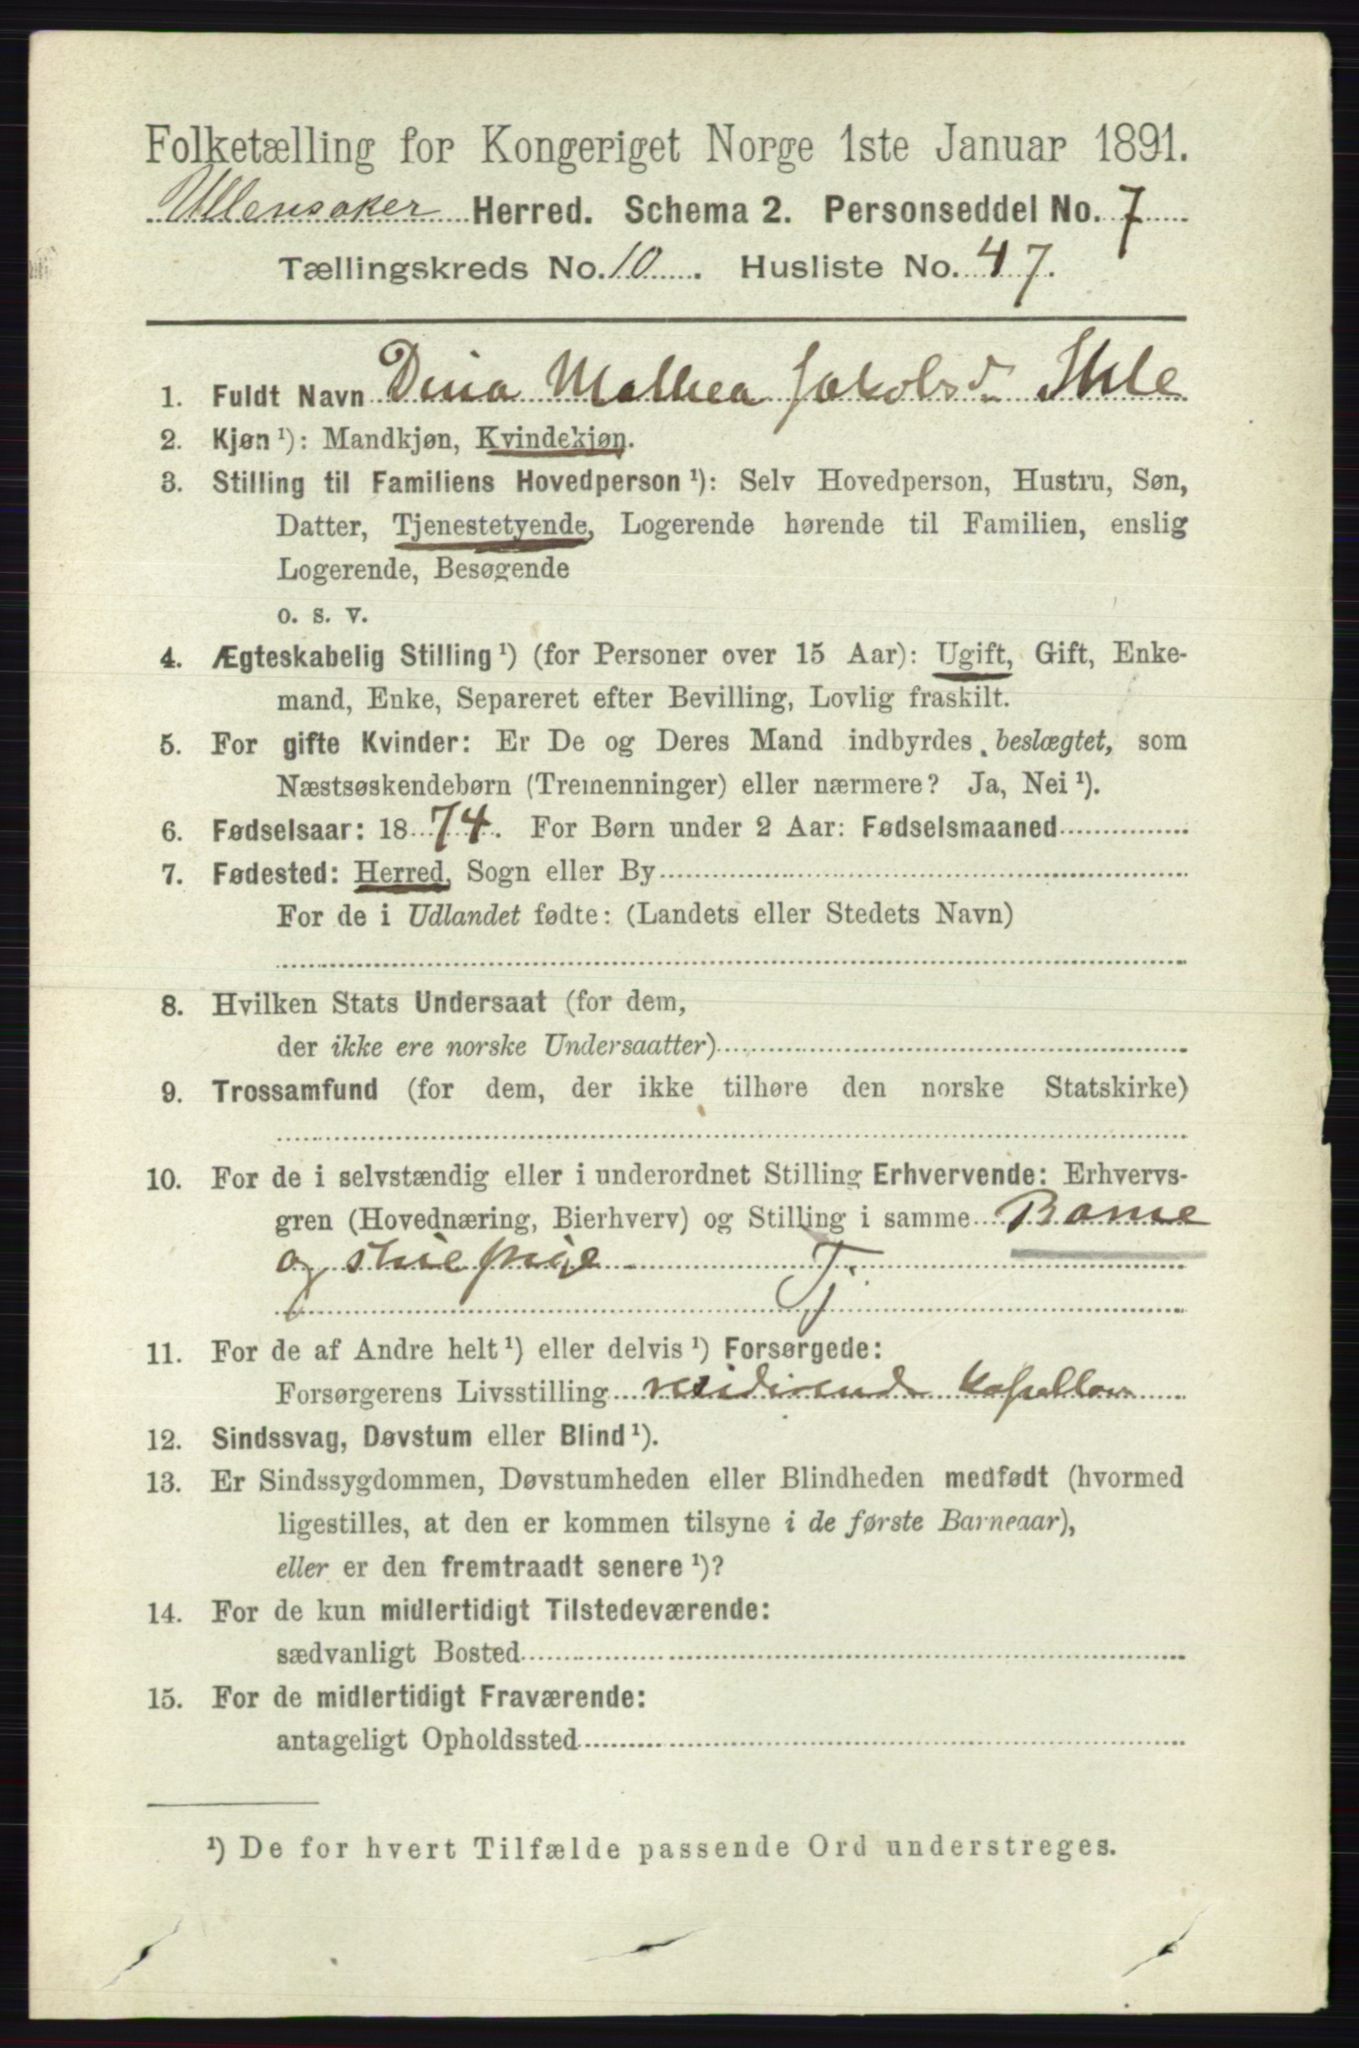 Folketælling for Kongeriget Norge 1ste Januar 1891.
Ullensaker Herred. Schema 2. Personseddel No. 7
Tællingskreds No. 10. Husliste No. 47.
1. Fuldt Navn Dina Mathea Jakobsd.
2. Kjøn ¹): Mandkjøn, Kvindekjøn.
3. Stilling til Familiens Hovedperson ¹): Selv Hovedperson, Hustru, Søn,
Datter, Tjenestetyende, Logerende hørende til Familien, enslig
Logerende, Besøgende
o. s. v.
4. Ægteskabelig Stilling ¹) (for Personer over 15 Aar): Ugift, Gift, Enke-
mand, Enke, Separeret efter Bevilling, Lovlig fraskilt.
5. For gifte Kvinder: Er De og Deres Mand indbyrdes beslægtet, som
Næstsøskendebørn (Tremenninger) eller nærmere? Ja, Nei ¹).
6. Fødselsaar: 1874. For Børn under 2 Aar: Fødselsmaaned
7. Fødested: Herred, Sogn eller By
For de i Udlandet fødte: (Landets eller Stedets Navn)
8. Hvilken Stats Undersaat (for dem,
der ikke ere norske Undersaatter)
9. Trossamfund (for dem, der ikke tilhøre den norske Statskirke)
10. For de i selvstændig eller i underordnet Stilling Erhvervende: Erhvervs-
gren (Hovednæring, Bierhverv) og Stilling i samme Barne
og pige Tj
11. For de af Andre helt ¹) eller delvis ¹) Forsørgede:
Forsørgerens Livsstilling residerende Kapellan
12. Sindssvag, Døvstum eller Blind ¹).
13. Er Sindssygdommen, Døvstumheden eller Blindheden medfødt (hvormed
ligestilles, at den er kommen tilsyne i de første Barneaar),
eller er den fremtraadt senere ¹)?
14. For de kun midlertidigt Tilstedeværende:
sædvanligt Bosted
15. For de midlertidigt Fraværende:
antageligt Opholdssted
¹) De for hvert Tilfælde passende Ord understreges.